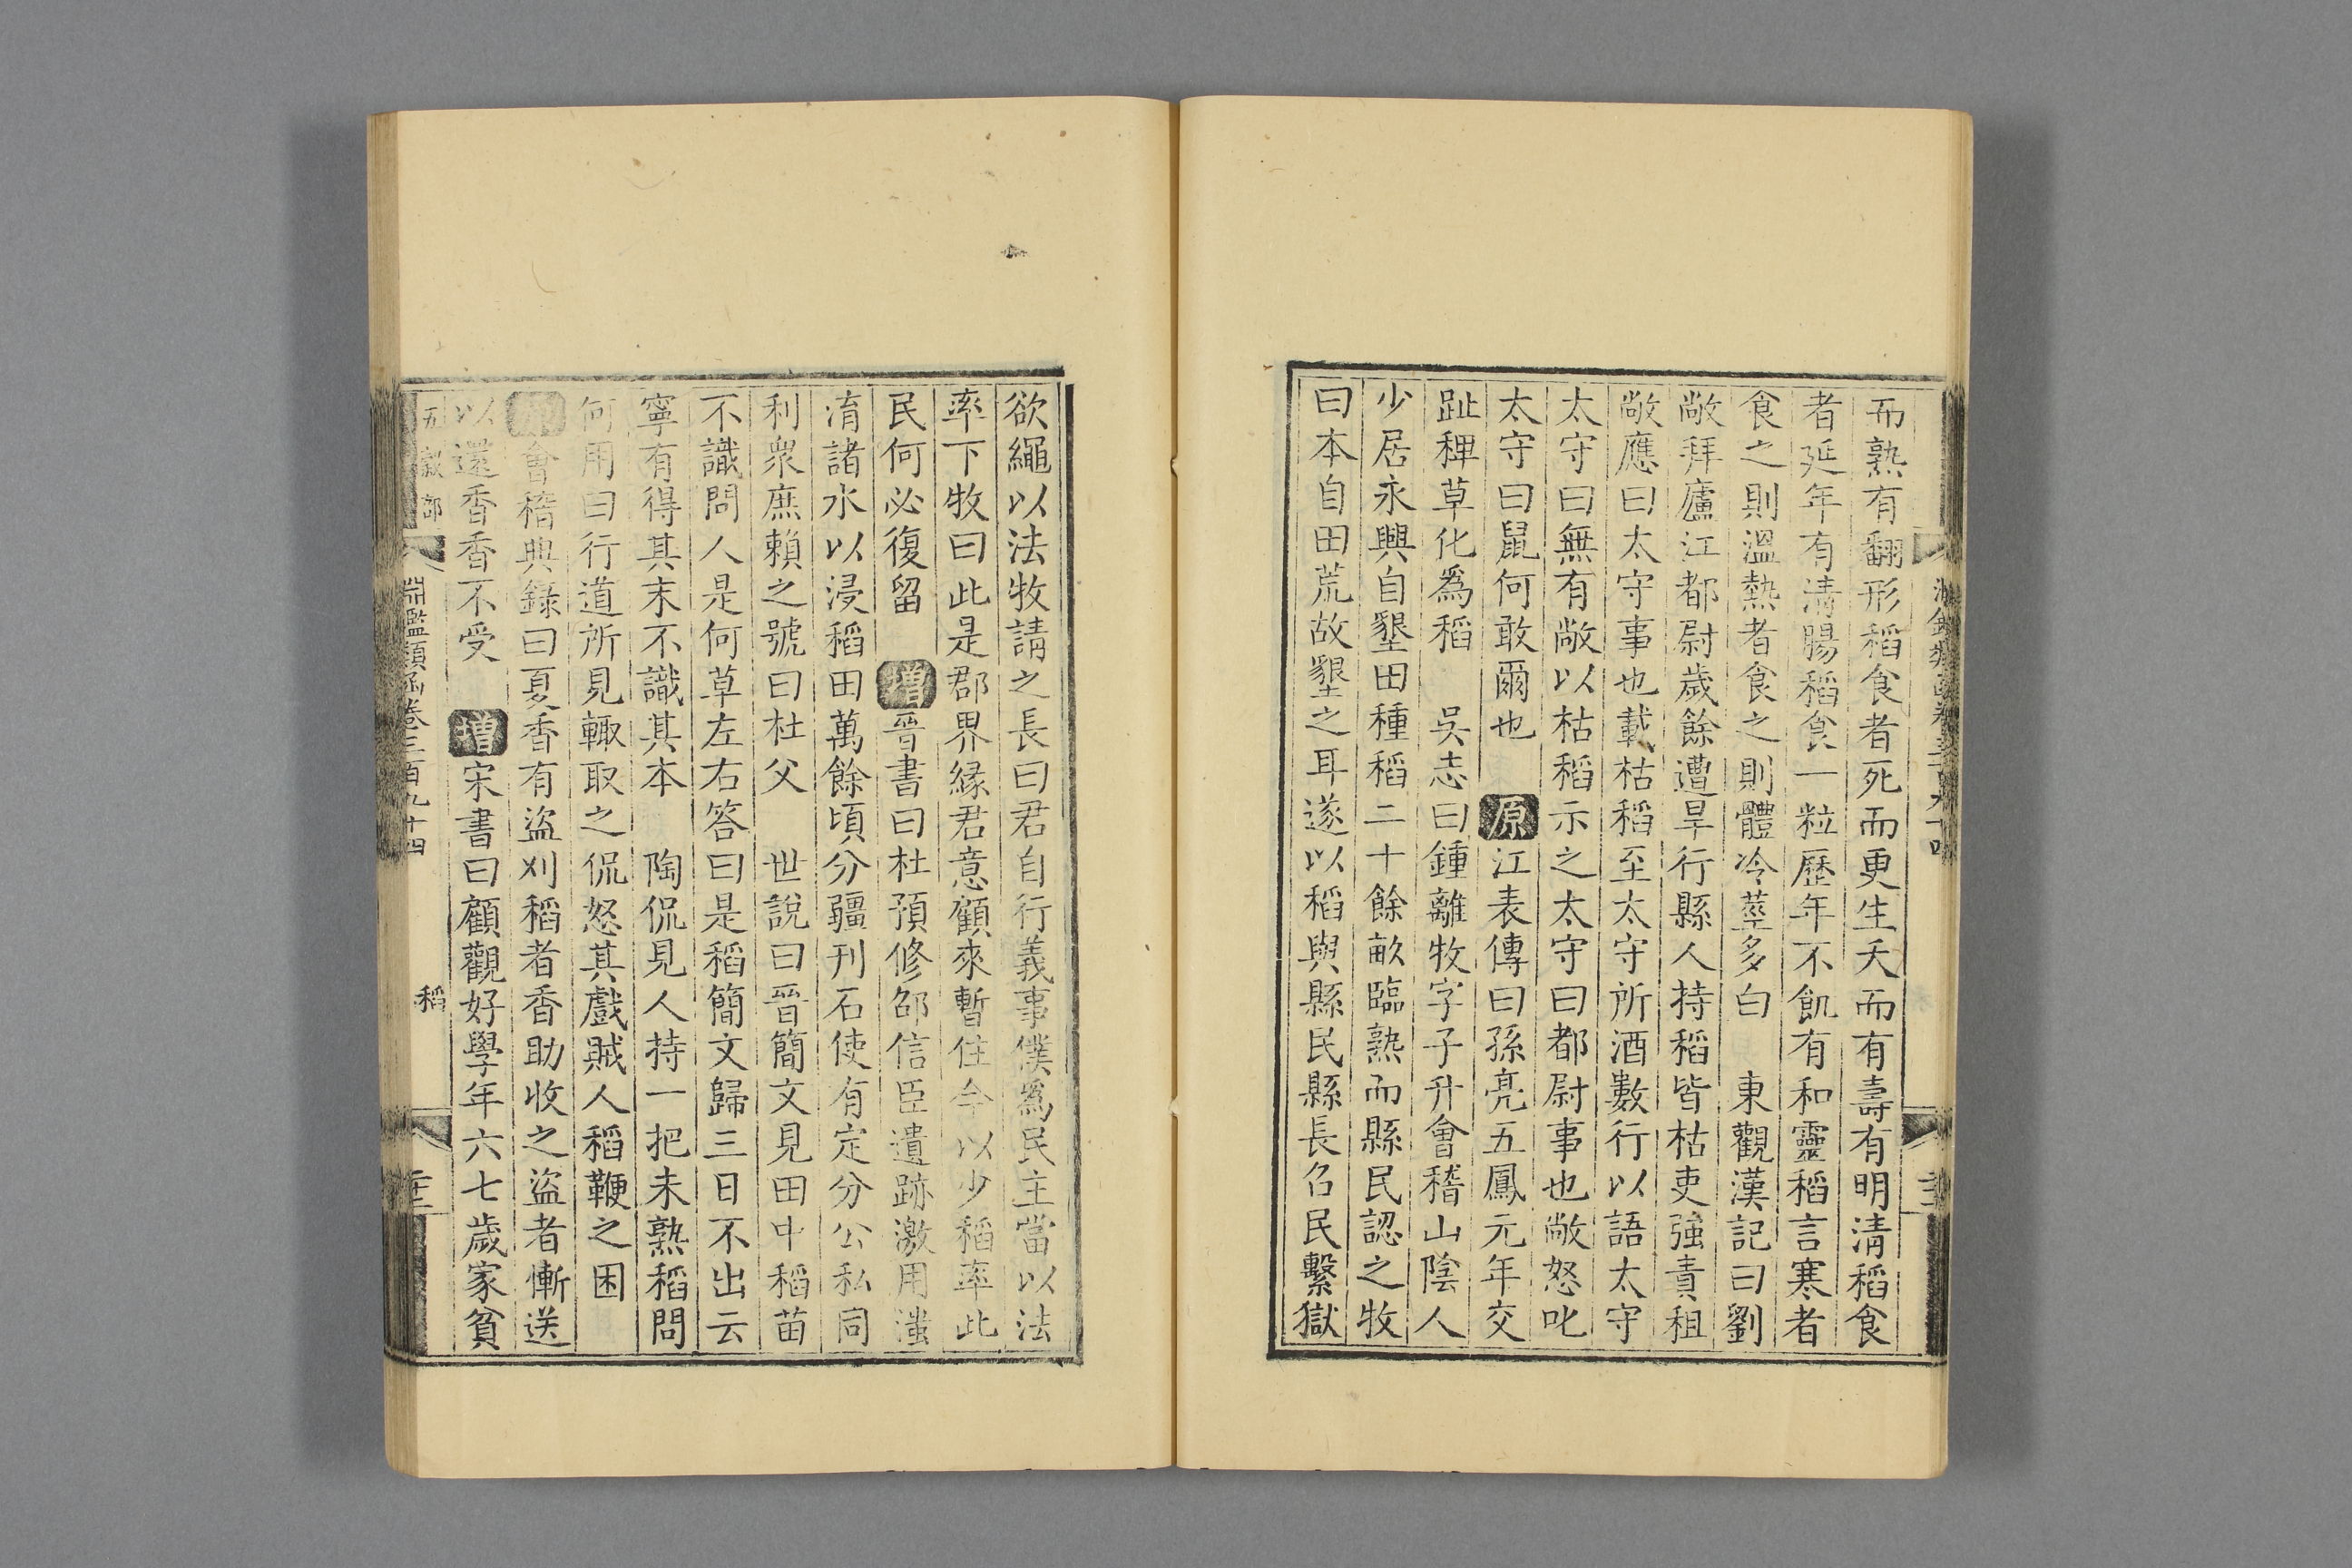 而熟有翻形稻食者死而更生夭而有壽有明清稻食
者延年有清腸稻食一粒歷年不飢有和靈稻言寒者
食之則溫熱者食之則體冷莖多白　東觀漢記曰劉
敞拜廬江都尉歲餘遭旱行縣人持稻皆枯吏強責租
敞應曰太守事也載枯稻至太守所酒數行以語太守
太守曰無有敞以枯稻示之太守曰都尉事也敞怒叱
太守曰鼠何敢爾也　原江表傳曰孫亮五鳳元年交
趾稗草化爲稻　吳志曰鍾離牧字子升會稽山陰人
少居永興自墾田種稻二十餘畝臨熟而縣民認之牧
曰本自田荒故墾之耳遂以稻與縣民縣長召民繫獄
欲繩以法牧請之長曰君自行義事僕爲民主當以法
率下牧曰此是郡界緣君意顧來暫住今以少稻率此
民何必復留　增晉書曰杜預修邵信臣遺跡激用滍
淯諸水以浸稻田萬餘頃分疆刊石使有定分公私同
利衆庶賴之號曰杜父　世說曰晉簡文見田中稻苗
不識問人是何草左右答曰是稻簡文歸三日不出云
寧有得其末不識其本　陶侃見人持一把未熟稻問
何用曰行道所見輙取之侃怒其戲賊人稻鞭之困
會稽典錄曰夏香有盜刈稻者香助收之盜者慚送
以還香香不受　增宋書曰顧觀好學年六七歲家貧
五穀部　淵鑑類函卷三百九十四　稻